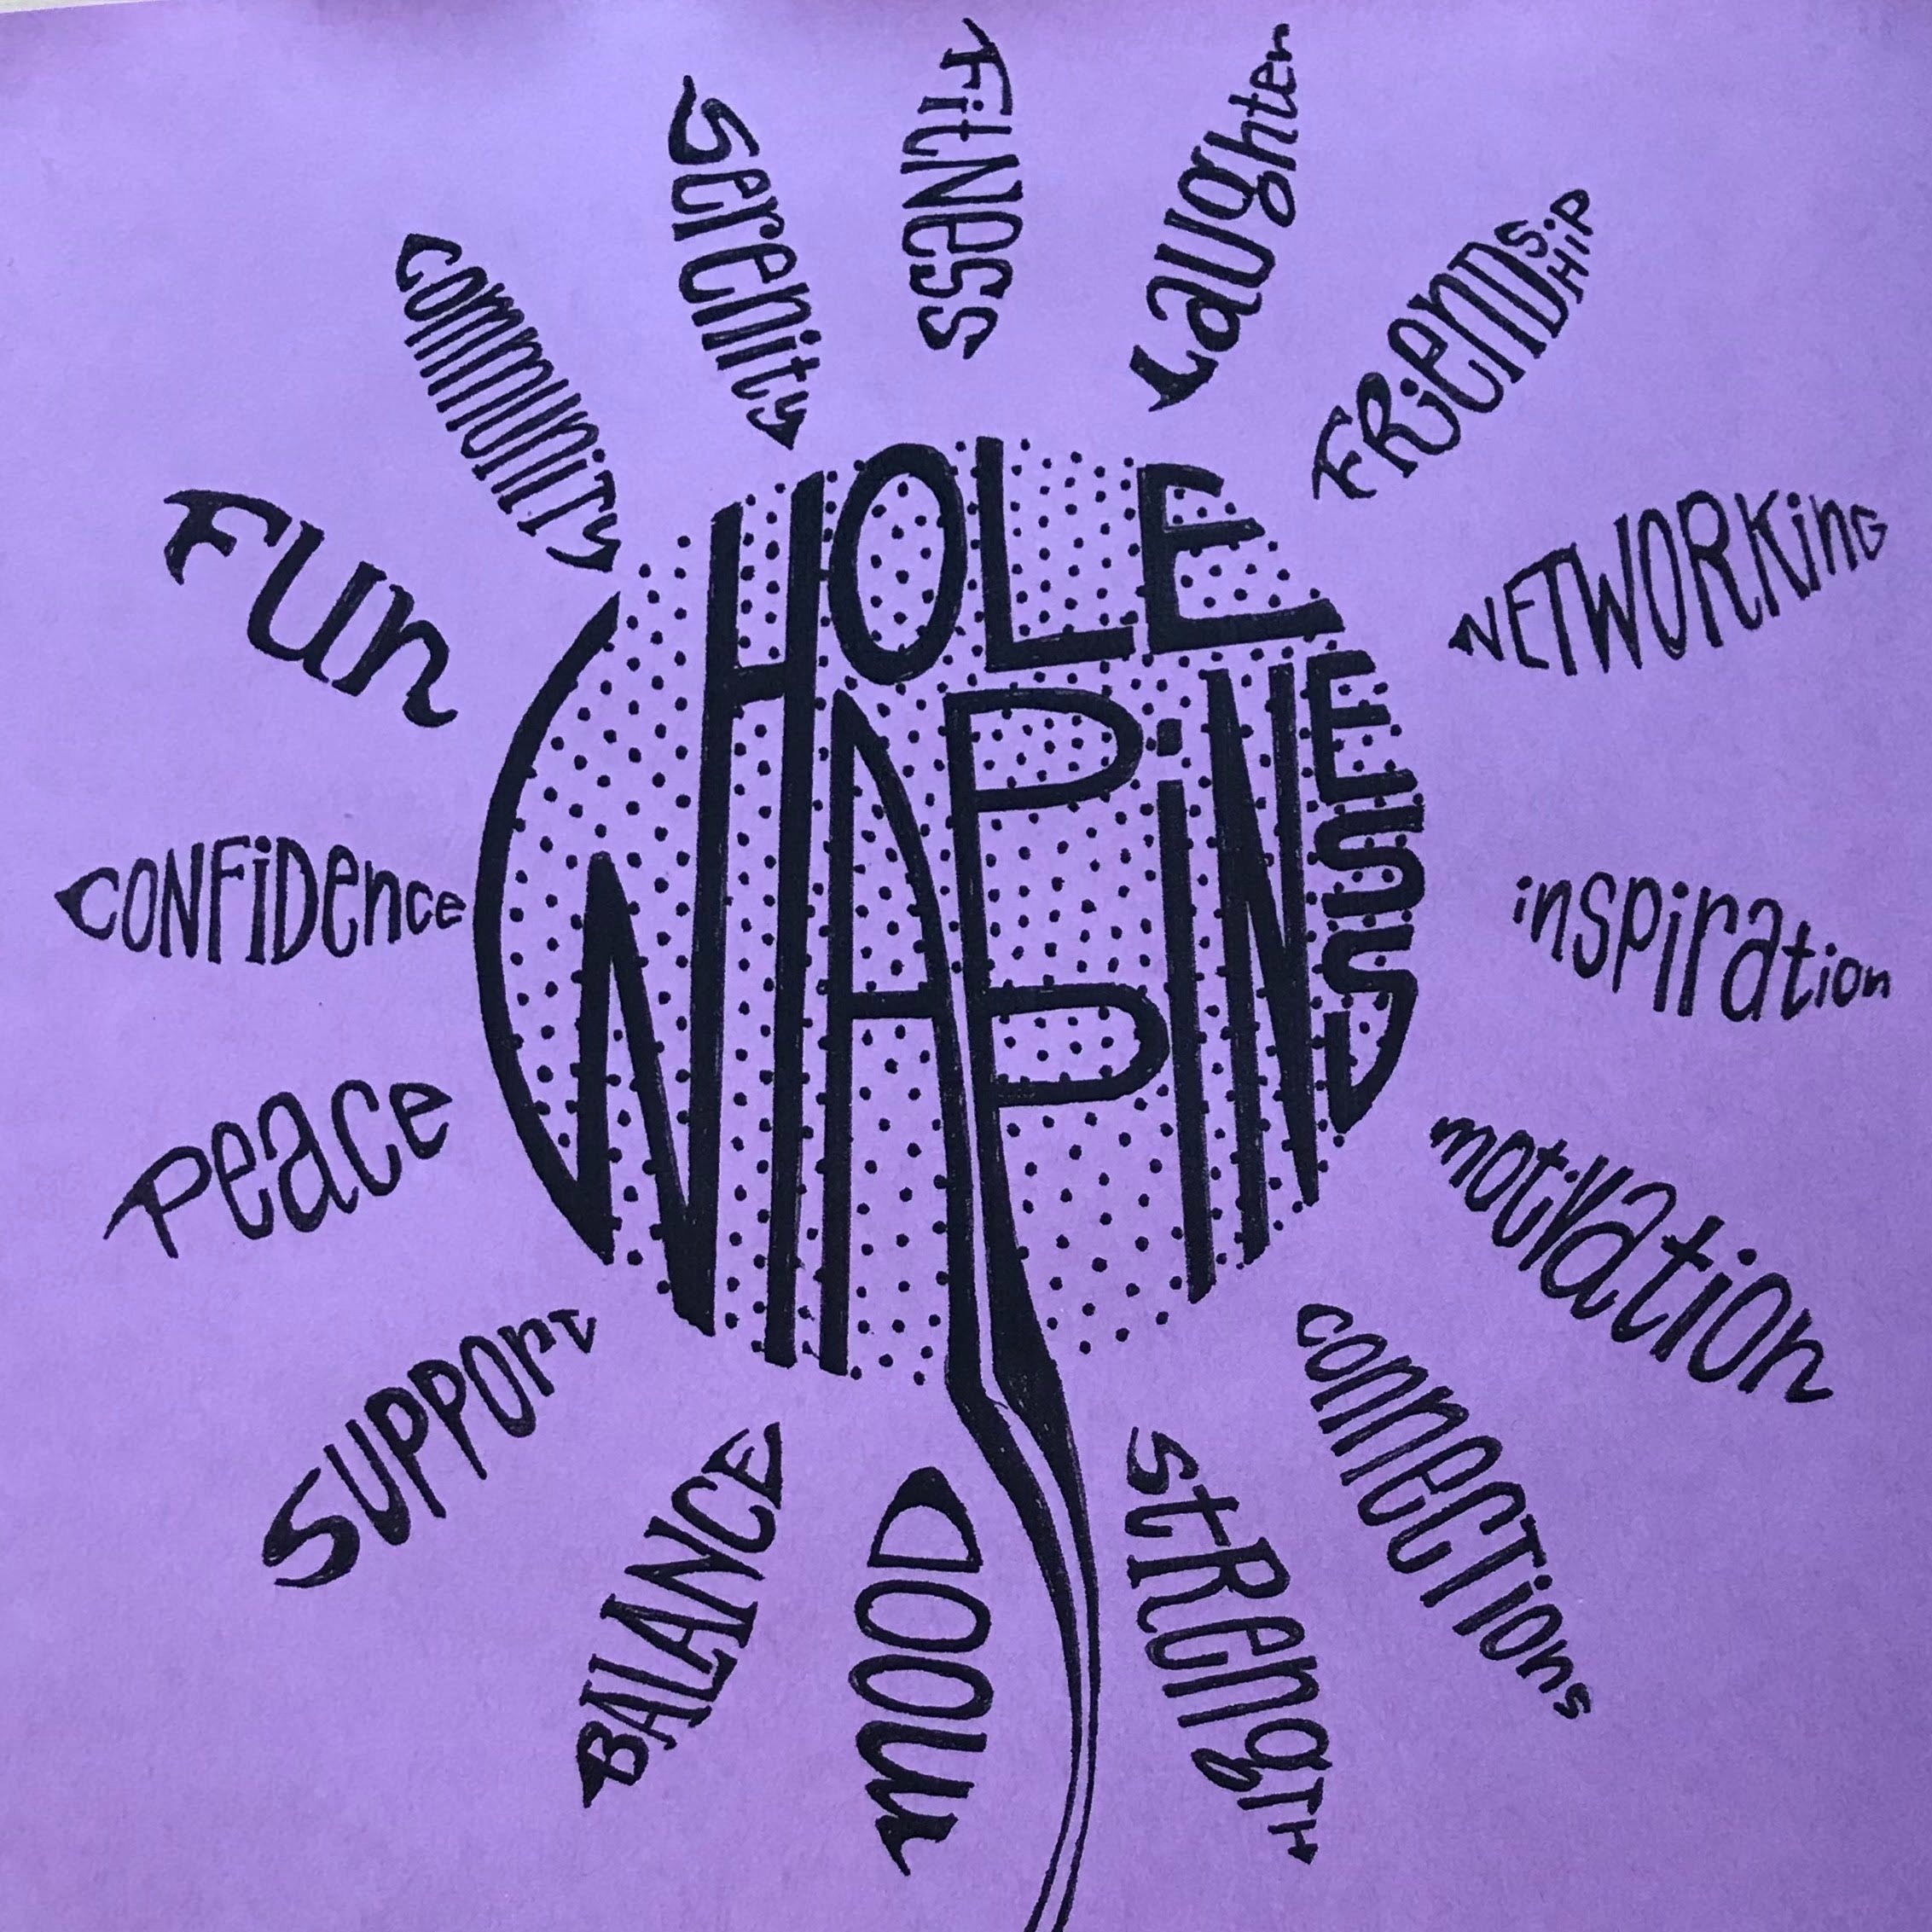 WHOLE
HAPPiNESS
FitNess
Laughter
FRienDSHiP
NETWORKing
inspiration
motiVation
connECTions
stRengTH
mOOD
BALANCE
SUPPOrt
Peace
CONFiDence
Fun
communiTy
Serenity